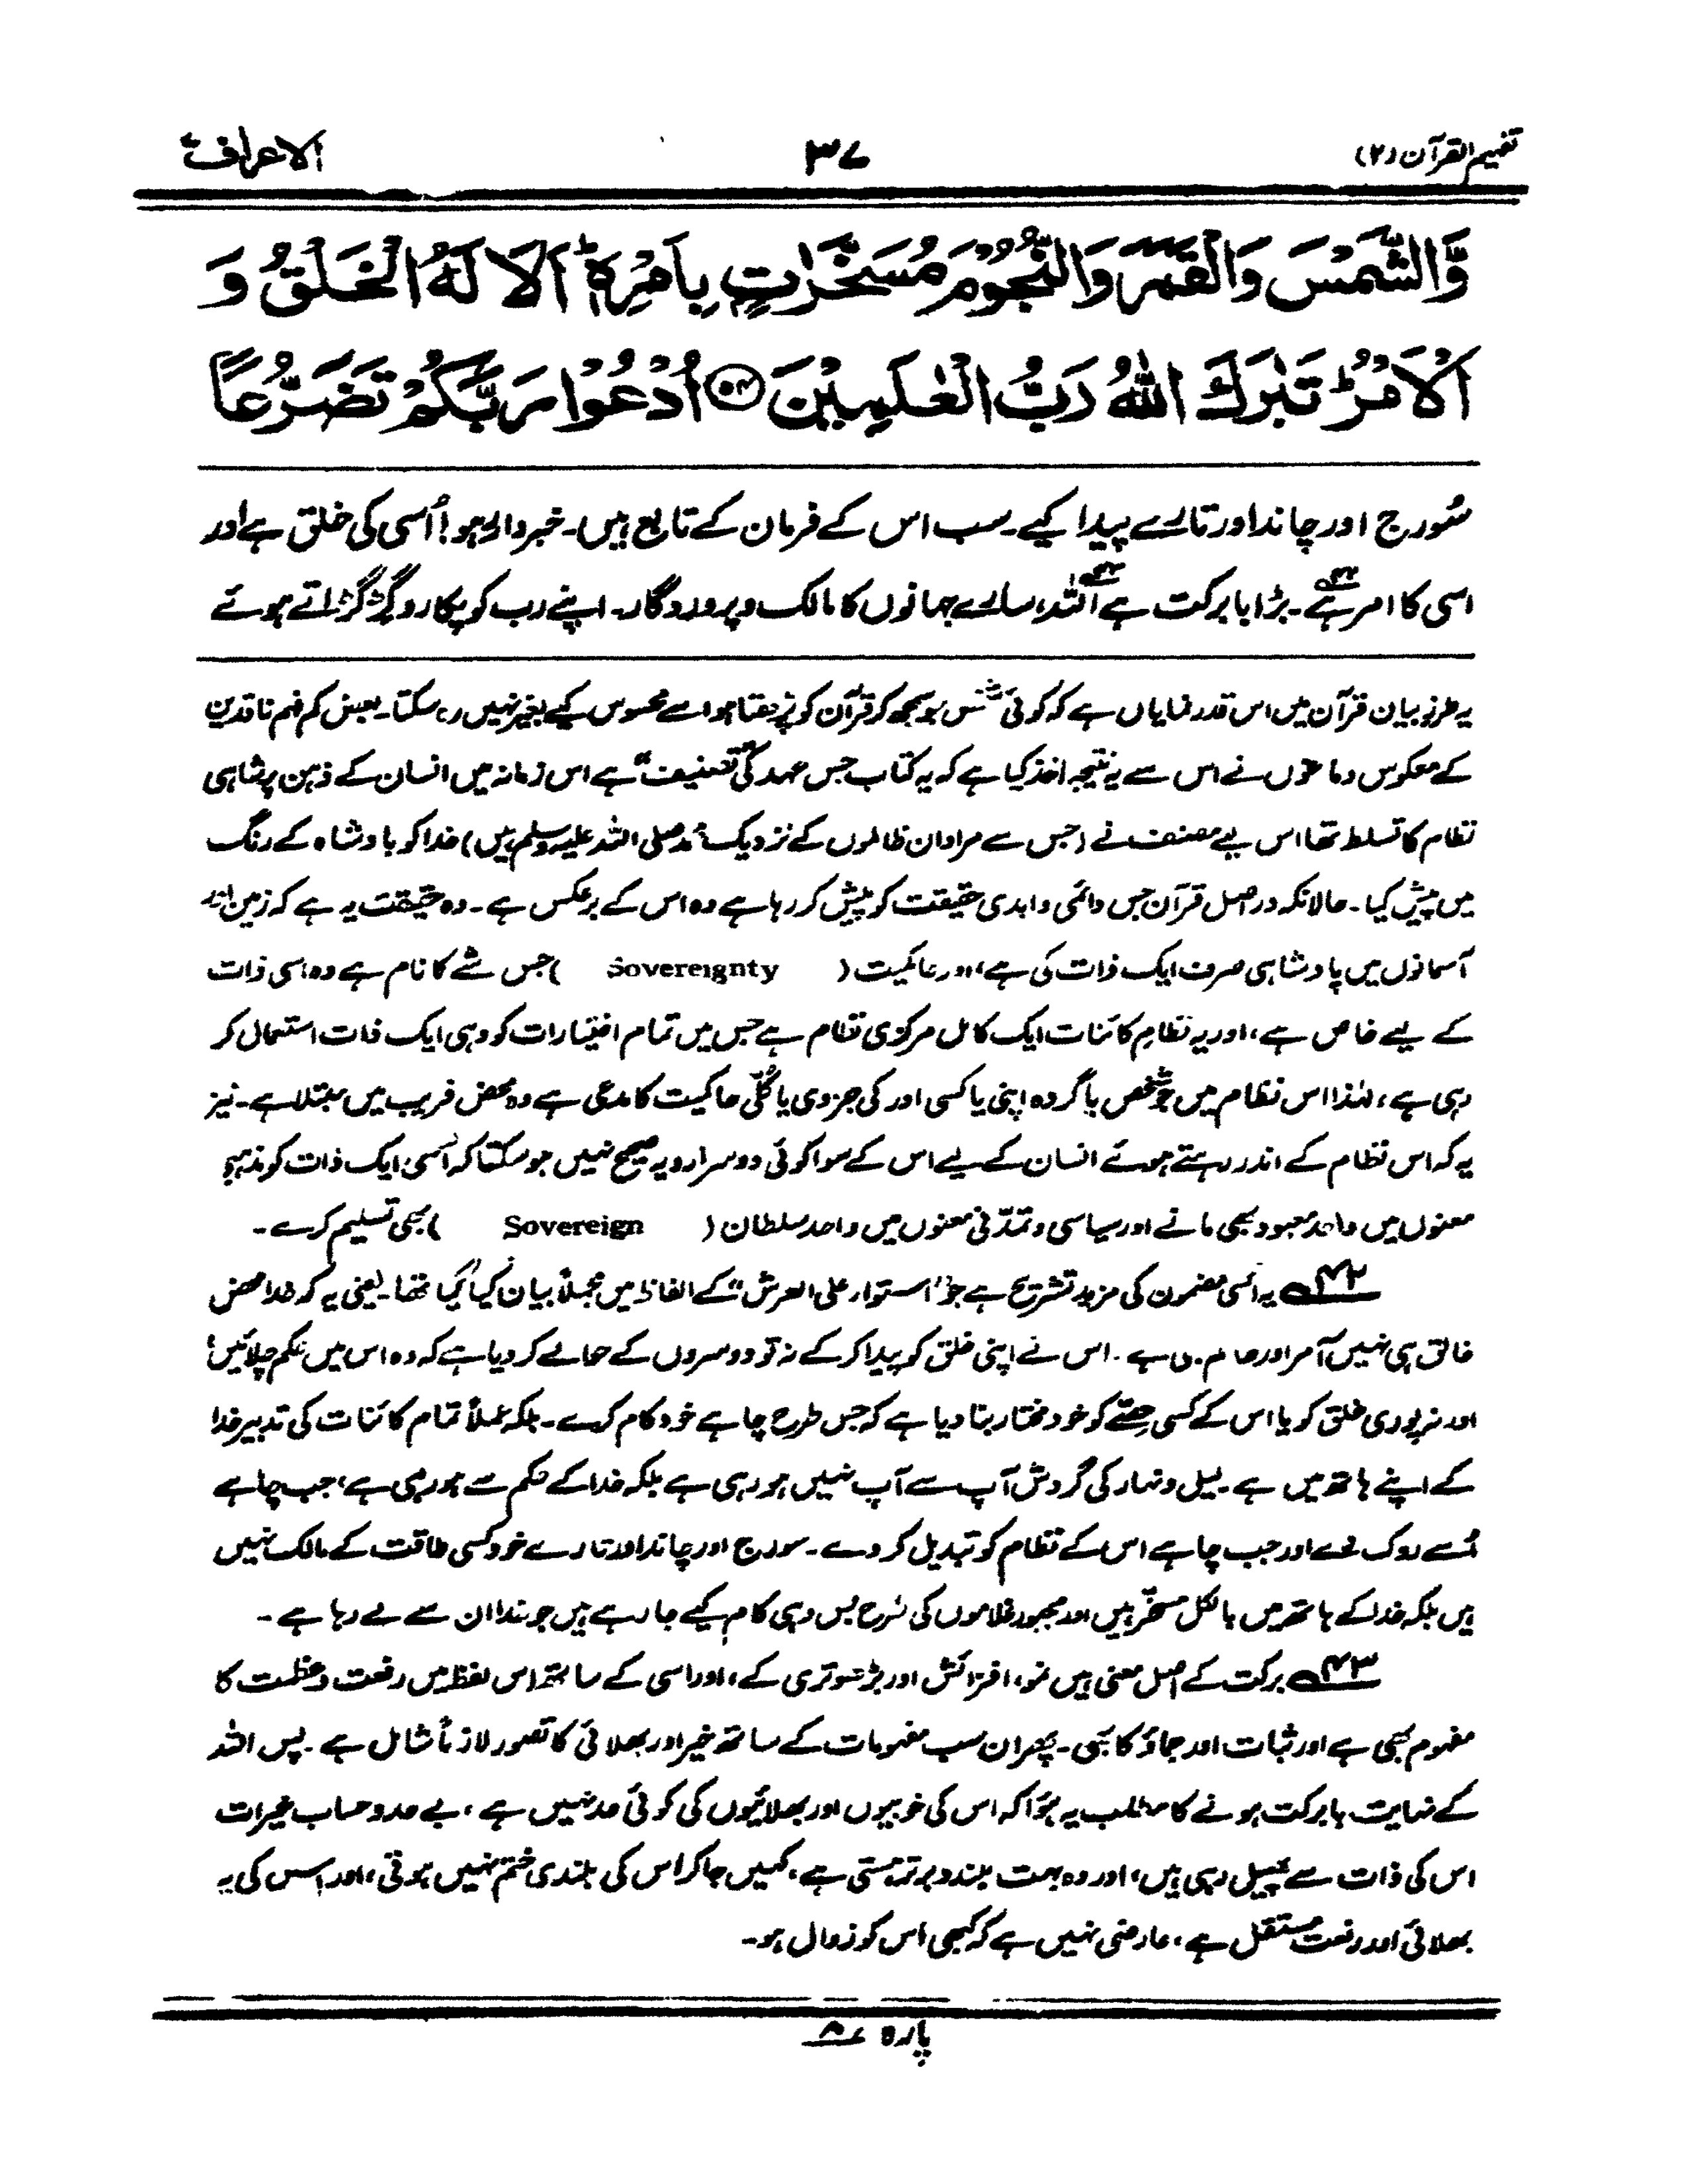 تفہیم القرآن (۲)
۳۷
الاعراف ۷
وَّالشَّمْسَ وَالْقَمَرَ وَالنُّجُوْمَ مُسَخَّرٰتٍۭ بِاَمْرِهٖ ؕ اَلَا لَهُ الْخَلْقُ وَ
الْاَمْرُ ؕ تَبٰرَكَ اللّٰهُ رَبُّ الْعٰلَمِيْنَ ﴿۵۴﴾ اُدْعُوْا رَبَّكُمْ تَضَرُّعًا
سُورج اور چاند اور تارے پیدا کیے۔ سب اس کے فرمان کے تابع ہیں۔ خبردار رہو! اُسی کی خلق ہے اور
اسی کا امر ہے۴۲۔ بڑا بابرکت ہے۴۳ اللہ، سارے جہانوں کا مالک و پروردگار۔ اپنے رب کو پکارو گڑگڑاتے ہوئے
یہ طرزِ بیان قرآن میں اس قدر نمایاں ہے کہ کوئی شخص جو سمجھ کر قرآن کو پڑھتا ہو اسے محسوس کیے بغیر نہیں رہ سکتا۔ بعض کم فہم ناقدین
کے معکوس دماغوں نے اس سے یہ نتیجہ اخذ کیا ہے کہ یہ کتاب جس عہد کی ”تصنیف“ ہے اس زمانہ میں انسان کے ذہن پر شاہی
نظام کا تسلط تھا اس لیے مصنف نے (جس سے مراد ان ظالموں کے نزدیک محمد صلی اللہ علیہ وسلم ہیں) خدا کو بادشاہ کے رنگ
میں پیش کیا۔ حالانکہ دراصل قرآن جس دائمی و ابدی حقیقت کو پیش کر رہا ہے وہ اس کے برعکس ہے۔ وہ حقیقت یہ ہے کہ زمین اور
آسمانوں میں پادشاہی صرف ایک ذات کی ہے، اور حاکمیت (Sovereignty) جس شے کا نام ہے وہ اسی ذات
کے لیے خاص ہے، اور یہ نظامِ کائنات ایک کامل مرکزی نظام ہے جس میں تمام اختیارات کو وہی ایک ذات استعمال کر
رہی ہے، لہٰذا اس نظام میں جو شخص یا گروہ اپنی یا کسی اور کی جزوی یا کُلّی حاکمیت کا مدعی ہے وہ محض فریب میں مبتلا ہے۔ نیز
یہ کہ اس نظام کے اندر رہتے ہوئے انسان کے لیے اس کے سوا کوئی دوسرا رویہ صحیح نہیں ہو سکتا کہ اُسی ایک ذات کو مذہبی
معنوں میں واحد معبود بھی مانے اور سیاسی و تمدّنی معنوں میں واحد سلطان (Sovereign) بھی تسلیم کرے۔
۴۲ یہ اُسی مضمون کی مزید تشریح ہے جو ”استواء علی العرش“ کے الفاظ میں مجملاً بیان کیا گیا تھا۔ یعنی یہ کہ خدا محض
خالق ہی نہیں آمر اور حاکم بھی ہے۔ اس نے اپنی خلق کو پیدا کر کے نہ تو دوسروں کے حوالے کر دیا ہے کہ وہ اس میں حکم چلائیں،
اور نہ پوری خلق کو یا اس کے کسی حصّے کو خود مختار بنا دیا ہے کہ جس طرح چاہے خود کام کرے۔ بلکہ عملاً تمام کائنات کی تدبیر خدا
کے اپنے ہاتھ میں ہے۔ لیل و نہار کی گردش آپ سے آپ نہیں ہو رہی ہے بلکہ خدا کے حکم سے ہو رہی ہے، جب چاہے
اُسے روک دے اور جب چاہے اس کے نظام کو تبدیل کر دے۔ سورج اور چاند اور تارے خود کسی طاقت کے مالک نہیں
ہیں بلکہ خدا کے ہاتھ میں بالکل مسخّر ہیں اور مجبور غلاموں کی طرح بس وہی کام کیے جا رہے ہیں جو خدا ان سے لے رہا ہے۔
۴۳ برکت کے اصل معنی ہیں نمو، افزائش اور بڑھوتری کے، اور اسی کے ساتھ اس لفظ میں رفعت و عظمت کا
مفہوم بھی ہے اور ثبات اور جماؤ کا بھی۔ پھر ان سب مفہومات کے ساتھ خیر اور بھلائی کا تصور لازماً شامل ہے۔ پس اللہ
کے نہایت بابرکت ہونے کا مطلب یہ ہؤا کہ اس کی خوبیوں اور بھلائیوں کی کوئی حد نہیں ہے، بے حد و حساب خیرات
اس کی ذات سے پھیل رہی ہیں، اور وہ بہت بلند و برتر ہستی ہے، کہیں جا کر اس کی بلندی ختم نہیں ہوتی، اور اس کی یہ
بھلائی اور رفعت مستقل ہے، عارضی نہیں ہے کہ کبھی اس کو زوال ہو۔
پارہ ۸